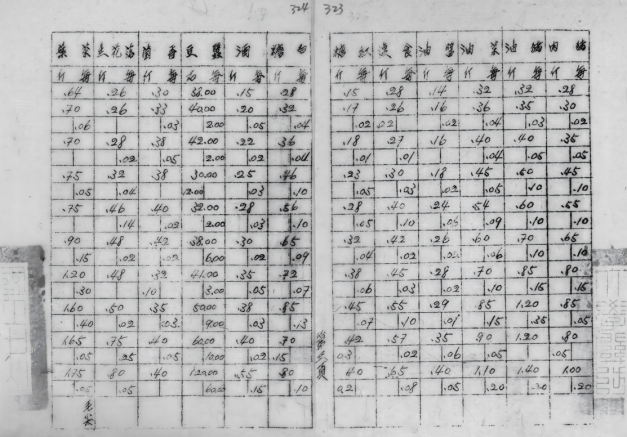 324 323
白糖 酒
猪肉 猪油 菜油 酱油 红糖
每斤 每斤 每斤 每斤
每斤 每斤 每斤 每斤 每斤 每斤
.64 .26 .30 38.00 .15 .28 .15 .28 .14 .32 .32 .28
.70 .26 .33 40.00 .20 .32 .17 .26 .16 .36 .35 .30
.06 .03 2.00 .05 .04 .02 .02 .02 .04 .03 .02
.70 .28 .38 42.00 .22 .36 .18 .27 .16 .40 .40 .35
.02 .05 2.00 .02 .04 .01 .01 .04 .05 .05
.75 .32 .38 30.00 .25 .46 .23 .30 .18 .45 .50 .45
.05 .04 12.00 .03 .10 .05 .03 .02 .05 .10 .10
.75 .46 .40 32.00 .28 .56 .28 .40 .24 .54 .60 .55
.14 .02 2.00 .03 .10 .05 .10 .06 .09 .10 .10
.90 .48 .42 38.00 .30 .65 .32 .42 .26 .60 .70 .65
.15 .02 .02 6.00 .02 .09 .04 .02 .02 .06 .10 .10
1.20 .48 .32 41.00 .35 .72 .38 .45 .28 .70 .85 .80
.30 .10 3.00 .05 .07 .06 .03 .02 .10 .15 .15
1.60 .50 .35 50.00 .38 .85 .45 .55 .29 .85 1.20 .85
.40 .02 .03 9.00 .03 .13 .07 .10 .01 .15 .35 .05
1.65 .75 .40 60.00 .40 .70 .42 .57 .35 .90 1.20 .80
.05 .25 .05 10.00 .02 .15 .03 .02 .06 .05 .05
1.75 .80 .40 120.00 .55 .80 .40 .65 .40 1.10 1.40 1.00
.05 .05 60.00 .15 .10 .02 .08 .05 .20 .20 .20
毛尖